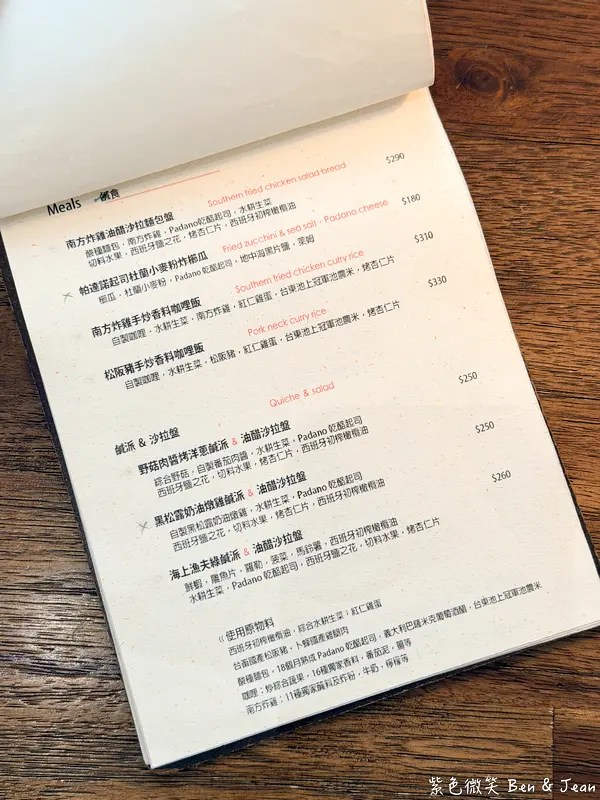 Meals 鹹食
Southern fried chicken salad bread $290
南方炸雞油醋沙拉麵包盤
酸種麵包，南方炸雞，Padano乾酪起司，水耕生菜
切料水果，西班牙鹽之花，烤杏仁片，西班牙初榨橄欖油
Fried zucchini & sea salt，Padano cheese $180
帕達諾起司杜蘭小麥粉炸櫛瓜
櫛瓜，杜蘭小麥粉，Padano 乾酪起司，地中海黑片鹽，萊姆
Southern fried chicken curry rice $310
南方炸雞手炒香料咖哩飯
自製咖哩，水耕生菜，南方炸雞，紅仁雞蛋，台東池上冠軍池農米，烤杏仁片
Pork neck curry rice $330
松阪豬手炒香料咖哩飯
自製咖哩，水耕生菜，松阪豬，紅仁雞蛋，台東池上冠軍池農米，烤杏仁片
Quiche & salad
鹹派 & 沙拉盤
野菇肉醬烤洋蔥鹹派 & 油醋沙拉盤 $250
綜合野菇，自製番茄肉醬，水耕生菜，Padano 乾酪起司
西班牙鹽之花，切料水果，烤杏仁片，西班牙初榨橄欖油
黑松露奶油燉雞鹹派 & 油醋沙拉盤 $250
自製黑松露奶油燉雞，水耕生菜，Padano 乾酪起司
西班牙鹽之花，切料水果，烤杏仁片，西班牙初榨橄欖油
海上漁夫綠鹹派 & 油醋沙拉盤 $260
鮮蝦，鯛魚片，羅勒，菠菜，馬鈴薯，西班牙初榨橄欖油
水耕生菜，Padano 乾酪起司，西班牙鹽之花，切料水果，烤杏仁片
使用原物料
西班牙初榨橄欖油，綜合水耕生菜；紅仁雞蛋
台畜國產松阪豬，卜蜂國產雞腿肉
酸種麵包，18個月熟成 Padano 乾酪起司，義大利巴薩米克葡萄酒醋，台東池上冠軍池農米
咖哩；炒綜合蔬果，16種獨家香料，番茄泥，薑等
南方炸雞；11種獨家醃料及炸粉，牛奶，檸檬等
紫色微笑 Ben & Jean